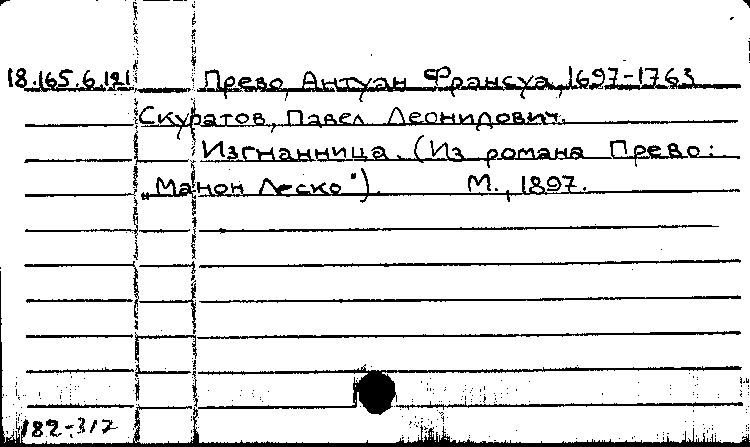 18.165.6.121 Прево, Антуан Франсуа, 1697-1763
Скуратов, Павел Леонидович.
Изгнанница. (Из романа Прево:
„Манон Леско"). М., 1897.
182-317